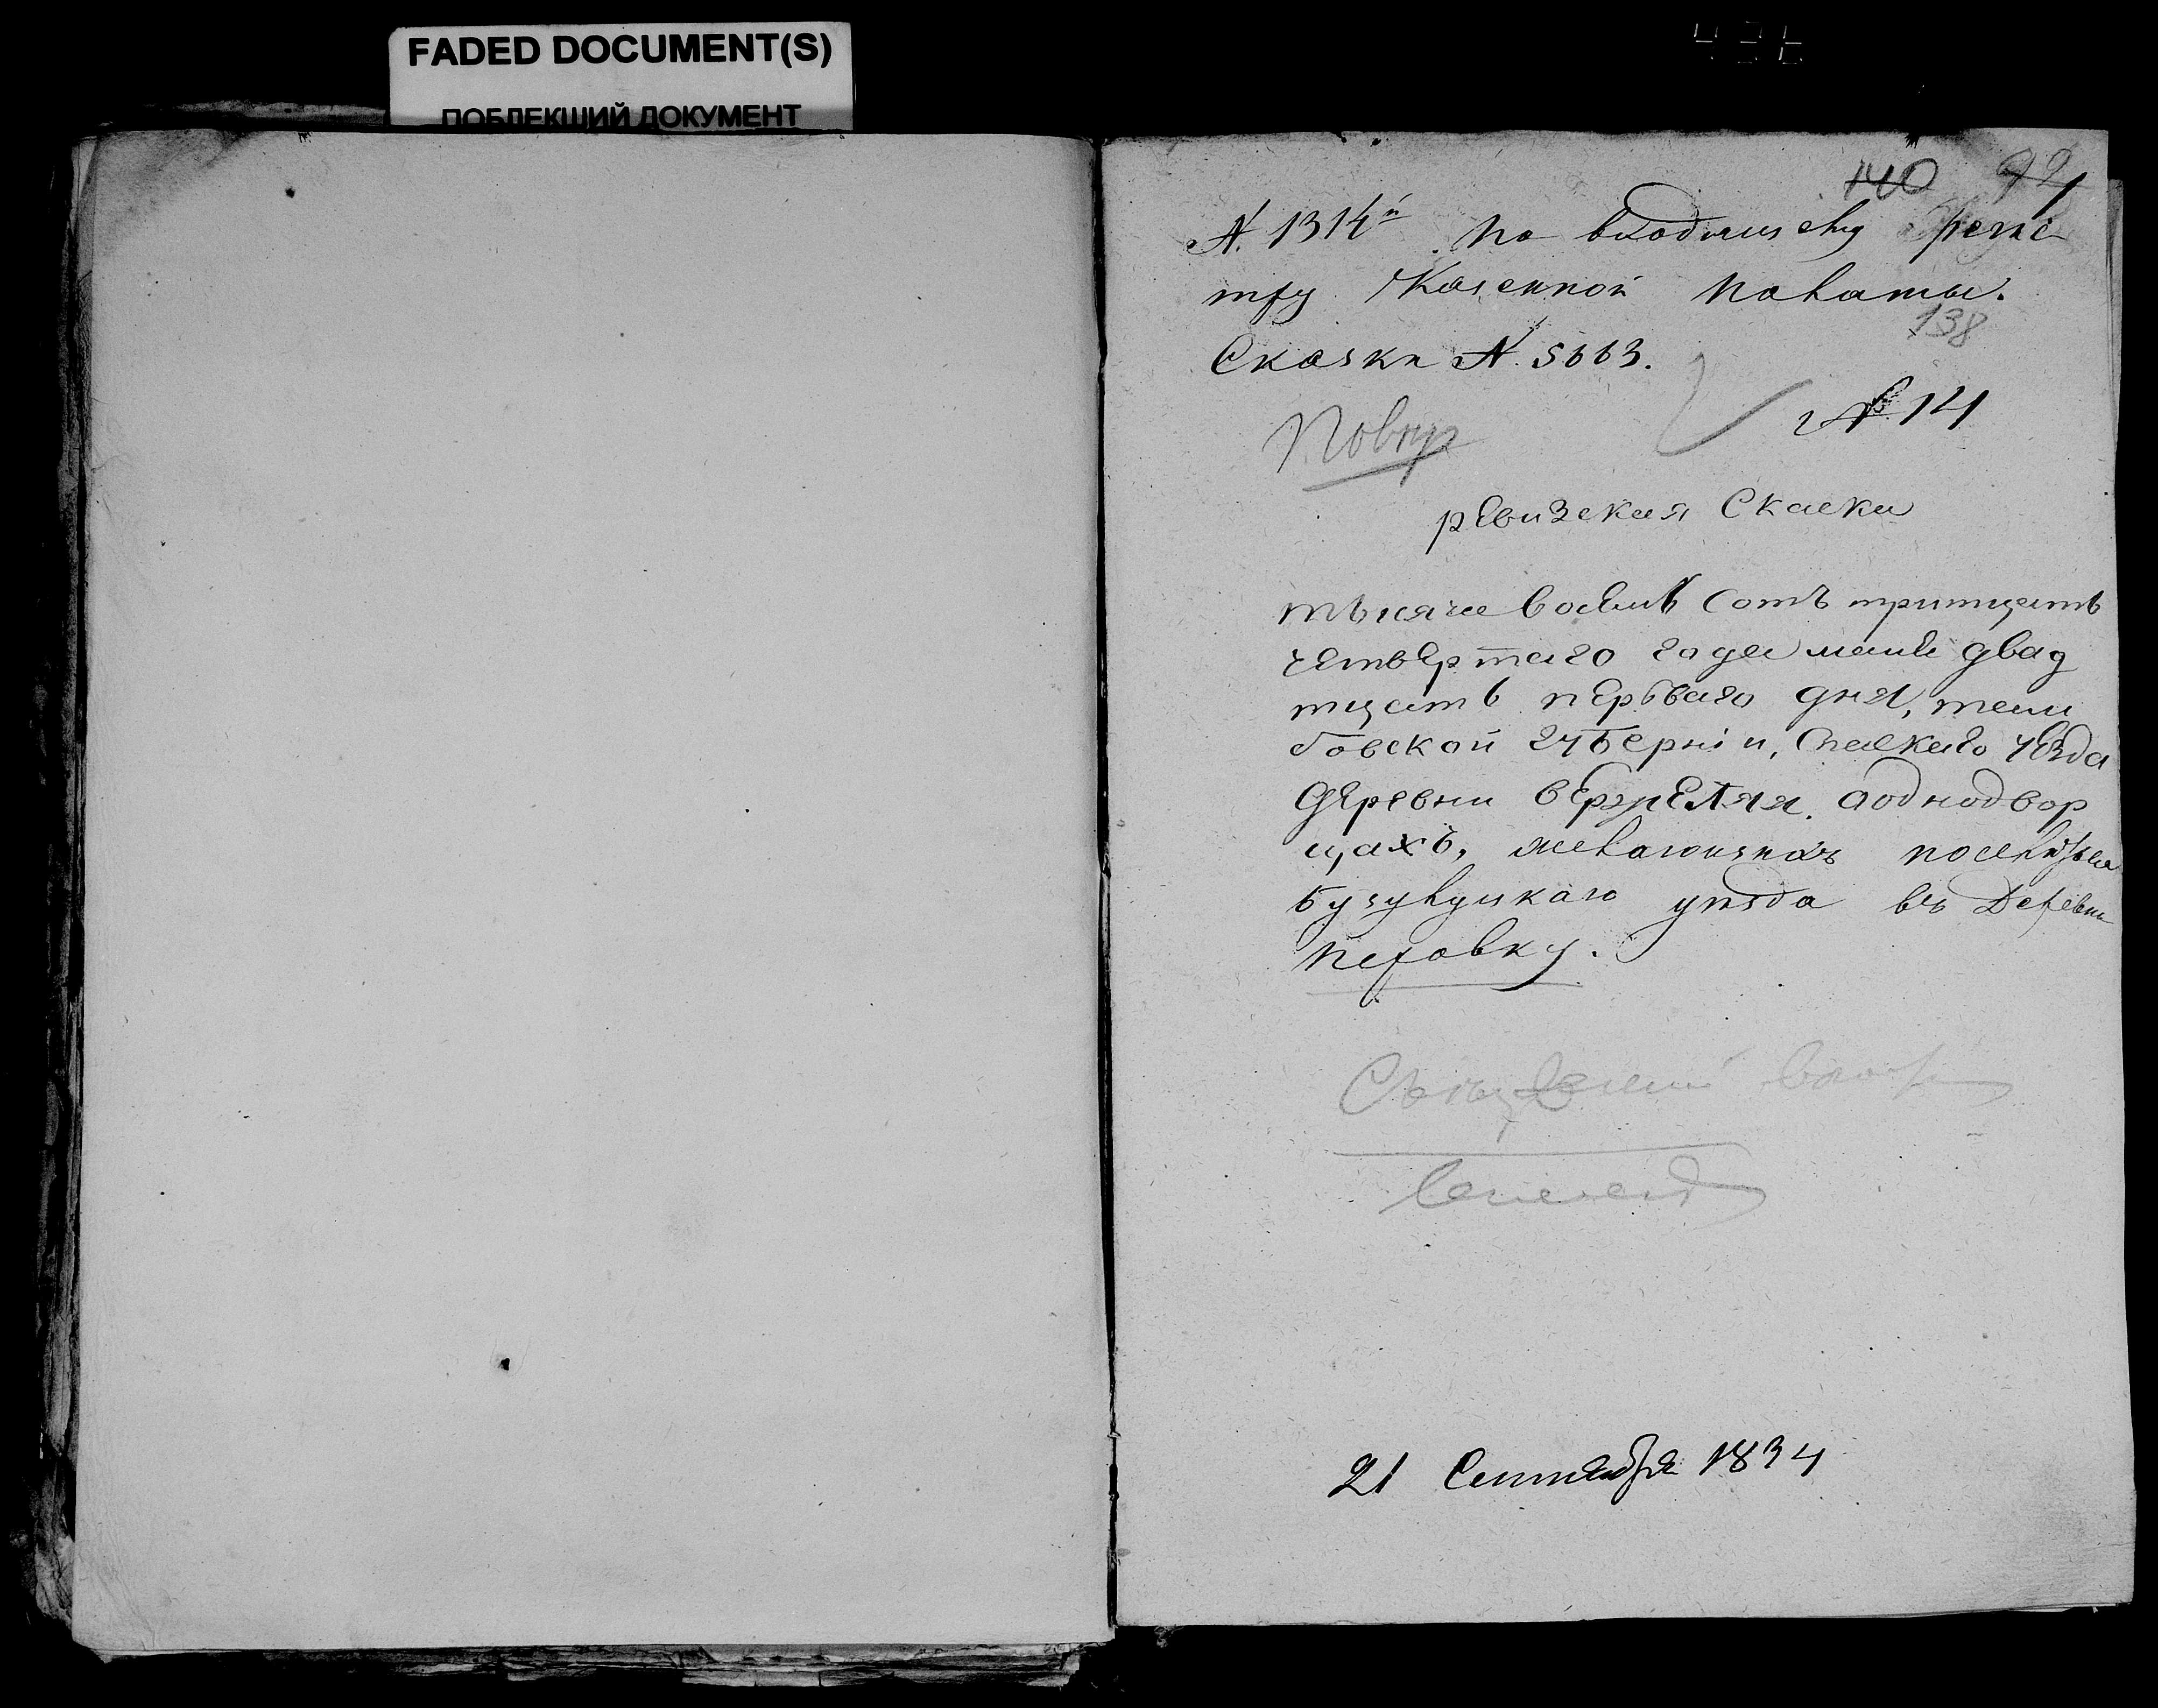 FADED DOCUMENT(S)
ПОБЛЕКШИЙ ДОКУМЕНТ
140 92
N. 1314й по входящему регис
тру Казенной Палаты.
138
Сказки N. 5663.
N. 14
Повтр
ревизская Скаска
тысяча восемь сотъ тритцать
четвертаго года маия двад
тцать перьваго дня, там
бовской губерніи, Спаскаго уезда
деревни вережеляя. аоднодвор
цахъ, желающихъ поселитьса
Бузулуцкаго уѣзда въ Деревню
Перовку.
21 Сентября 1834